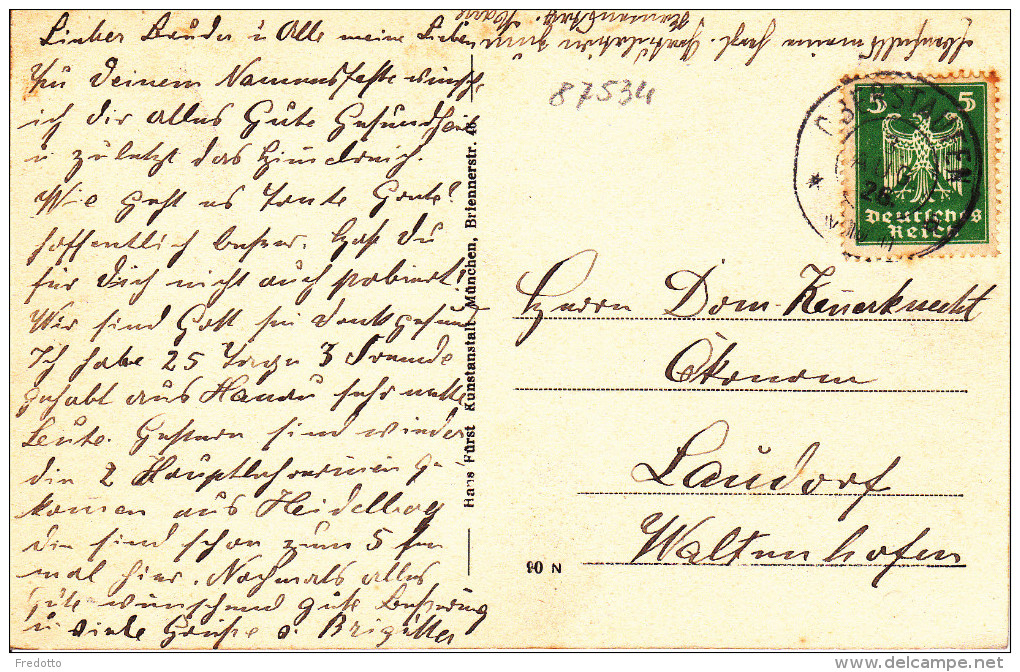 Lieber Bruder u Alle meine Lieben
Zu Deinem Namensfeste wünsche
ich dir alles Gute Gesundheit
u zuletzt das Himelreich.
Wie geht es Tante
hoffentlich besser. Hast Du
für Dich nicht auch probiert!
Wir sind Gott sei Dank gesund
Ich habe 25 Tage 3 Fremde
gehabt aus Hanau sehr nette
Leute. Gestern sind wieder
die 2 Hauptlehrerinen ge
komen aus Heidelberg
die sind schon zum 5 ten
mal hier. Nochmals alles
Gute wünschend gute Besserung
u viele Grüße v. Brigitte
Ebenfalls meine herzl. Gratulation zum
Namenstag.
87534
Hans Fürst Kunstanstalt München, Briennerstr. 46.
90 N
5 5
Deutsches
Reich
OBERSTAUFEN
AUG
26.
Herrn Dom. Zeuerknecht
Ökonom
Laudorf
Waltenhofen
Fredotto
http://www.delcampe.net